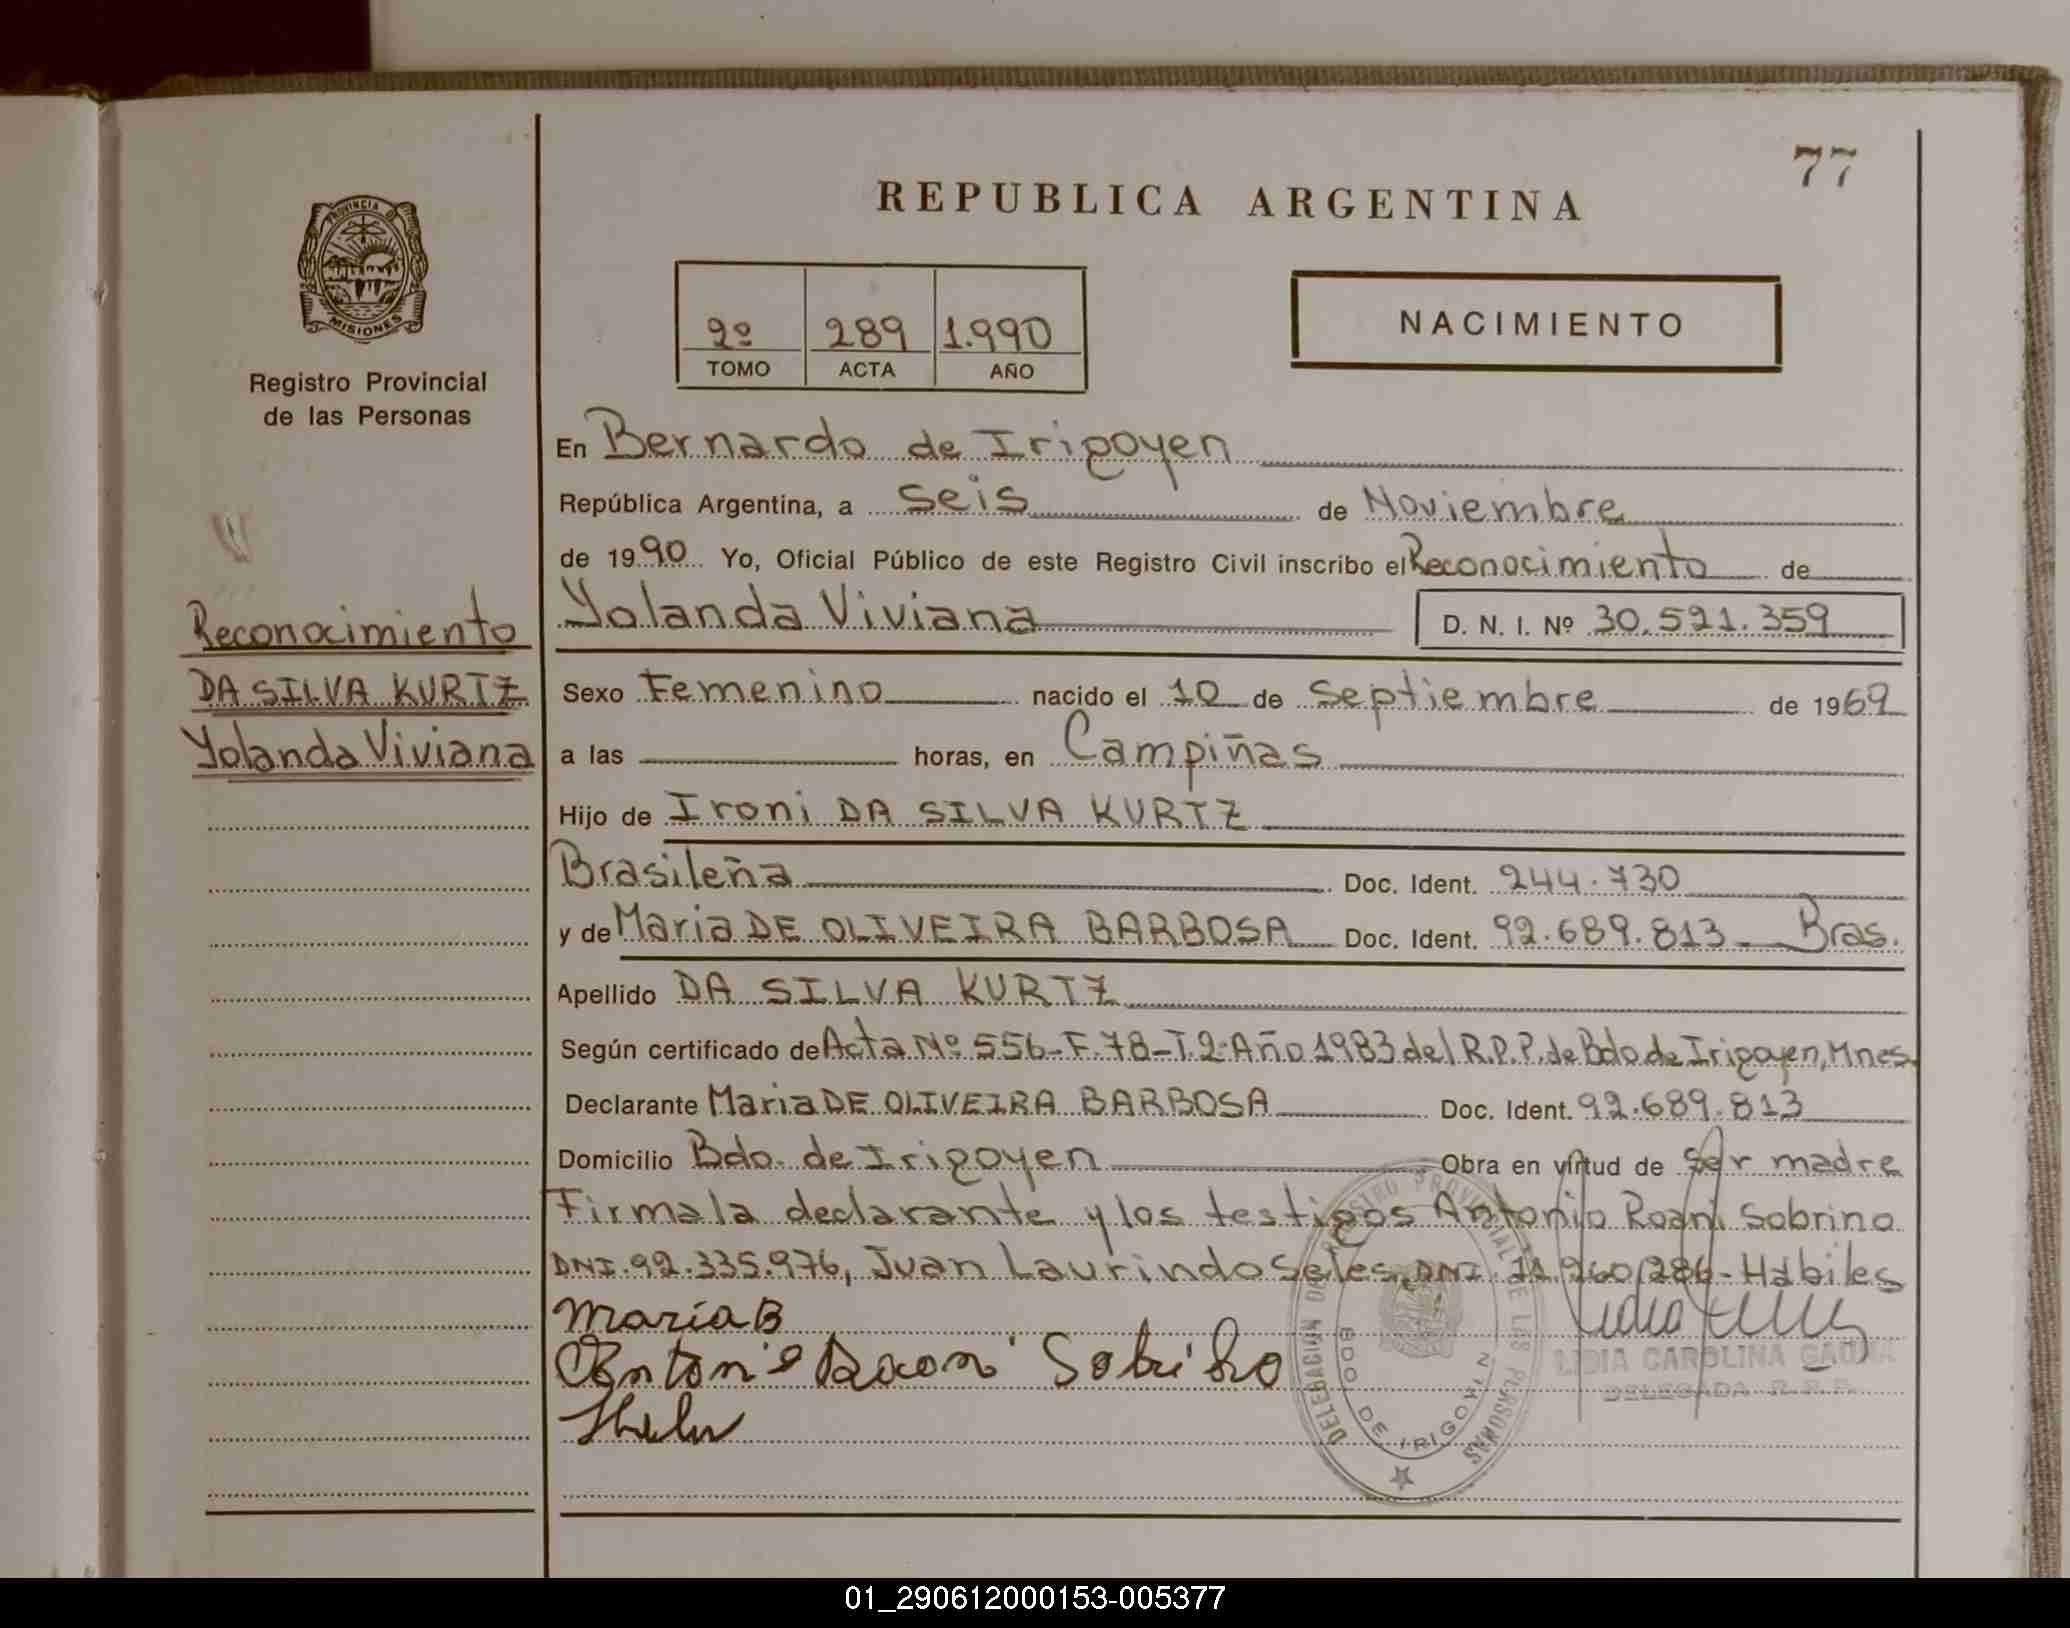 77
REPUBLICA ARGENTINA
PROVINCIA DE
MISIONES
2º 289 1.990
TOMO ACTA AÑO
NACIMIENTO
Registro Provincial
de las Personas
Reconocimiento
DA SILVA KURTZ
Yolanda Viviana
En Bernardo de Irigoyen
República Argentina, a seis de Noviembre
de 1990 Yo, Oficial Público de este Registro Civil inscribo el Reconocimiento de
Yolanda Viviana D. N. I. Nº 30.521.359
Sexo Femenino nacido el 10 de Septiembre de 1969
a las horas, en Campiñas
Hijo de Ironi DA SILVA KURTZ
Brasileña Doc. Ident. 244.730
y de Maria DE OLIVEIRA BARBOSA Doc. Ident. 92.689.813 Bras.
Apellido DA SILVA KURTZ
Según certificado de Acta Nº 556-F.78-T.2-Año 1983 del R.P.P. de Bdo de Irigoyen, Mnes.
Declarante Maria DE OLIVEIRA BARBOSA Doc. Ident. 92.689.813
Domicilio Bdo. de Irigoyen Obra en virtud de ser madre
Firma la declarante y los testigos Antonio Roani Sobrino
DNI.92.335.976, Juan Laurindo Seles, DNI. Hábiles
María B
Sobriho
LIDIA CAROLINA
DELEGADA R.P.P.
DELEGACION DEL REGISTRO PROVINCIAL DE LAS PERSONAS
BDO DE IRIGOYEN
01_290612000153-005377